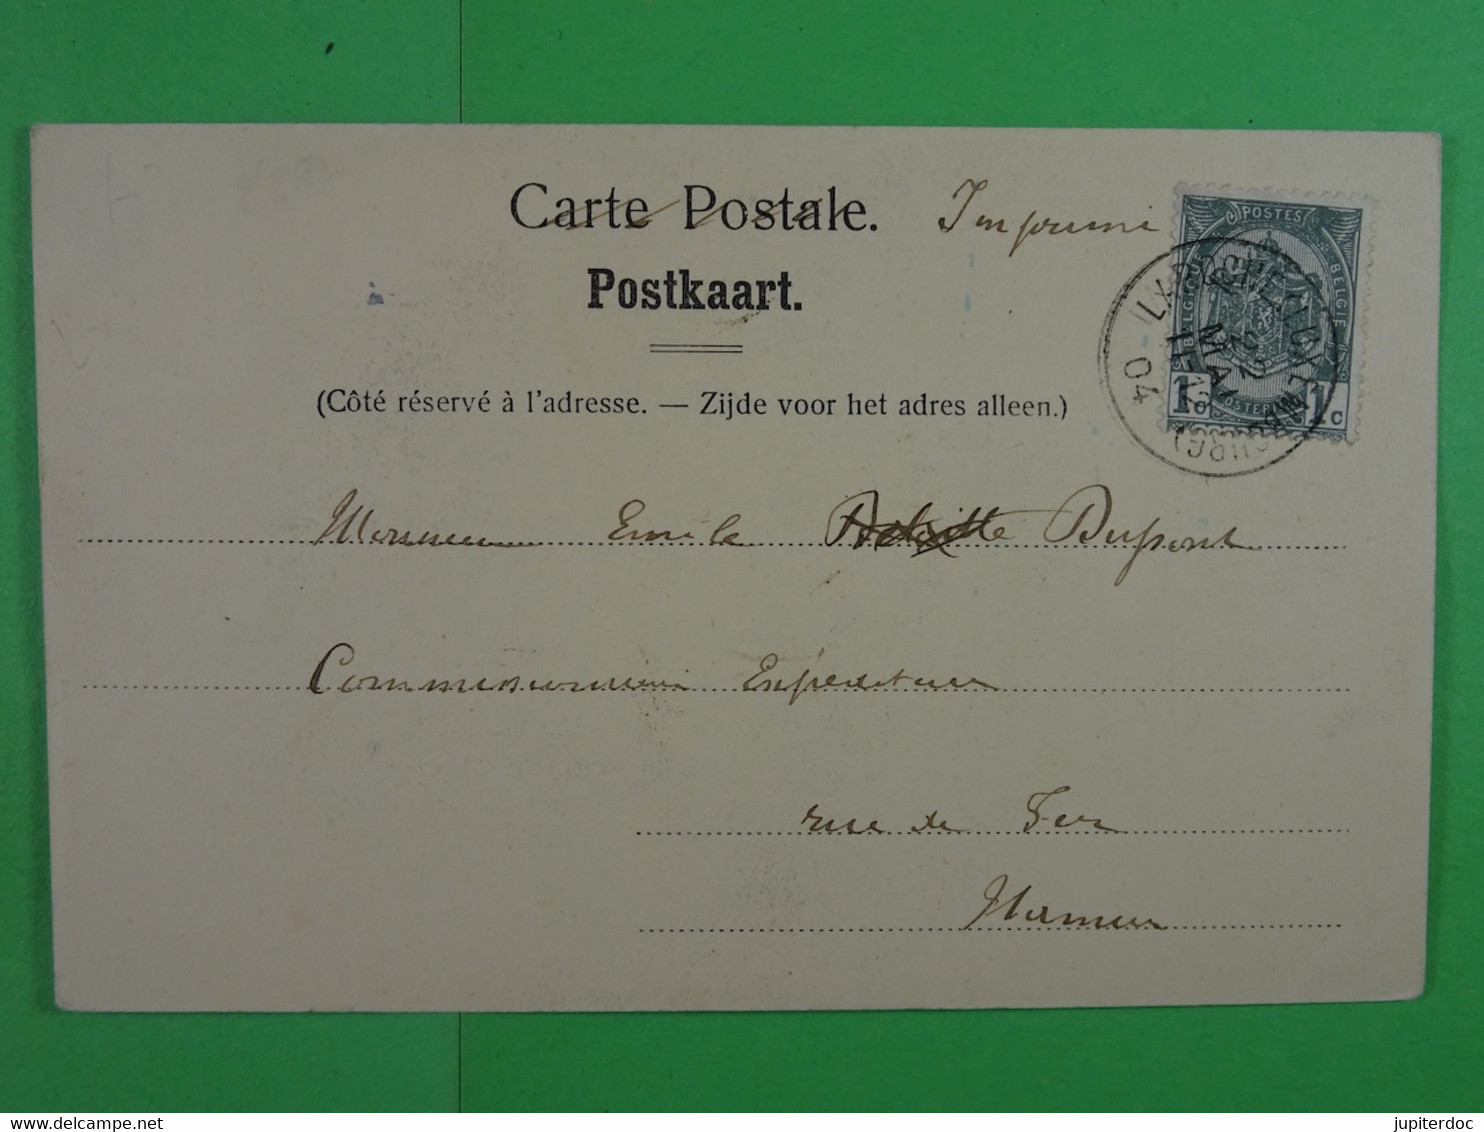 Carte Postale. Imprimé
Postkaart.
(Côté réservé à l'adresse. — Zijde voor het adres alleen.)
POSTES
BELGIQUE BELGIE
1c 1c
22
MAI
04
Monsieur Emile Dupont
Commissionnaire Expéditeur
rue de Fer
Namur
delcampe.net
jupiterdoc